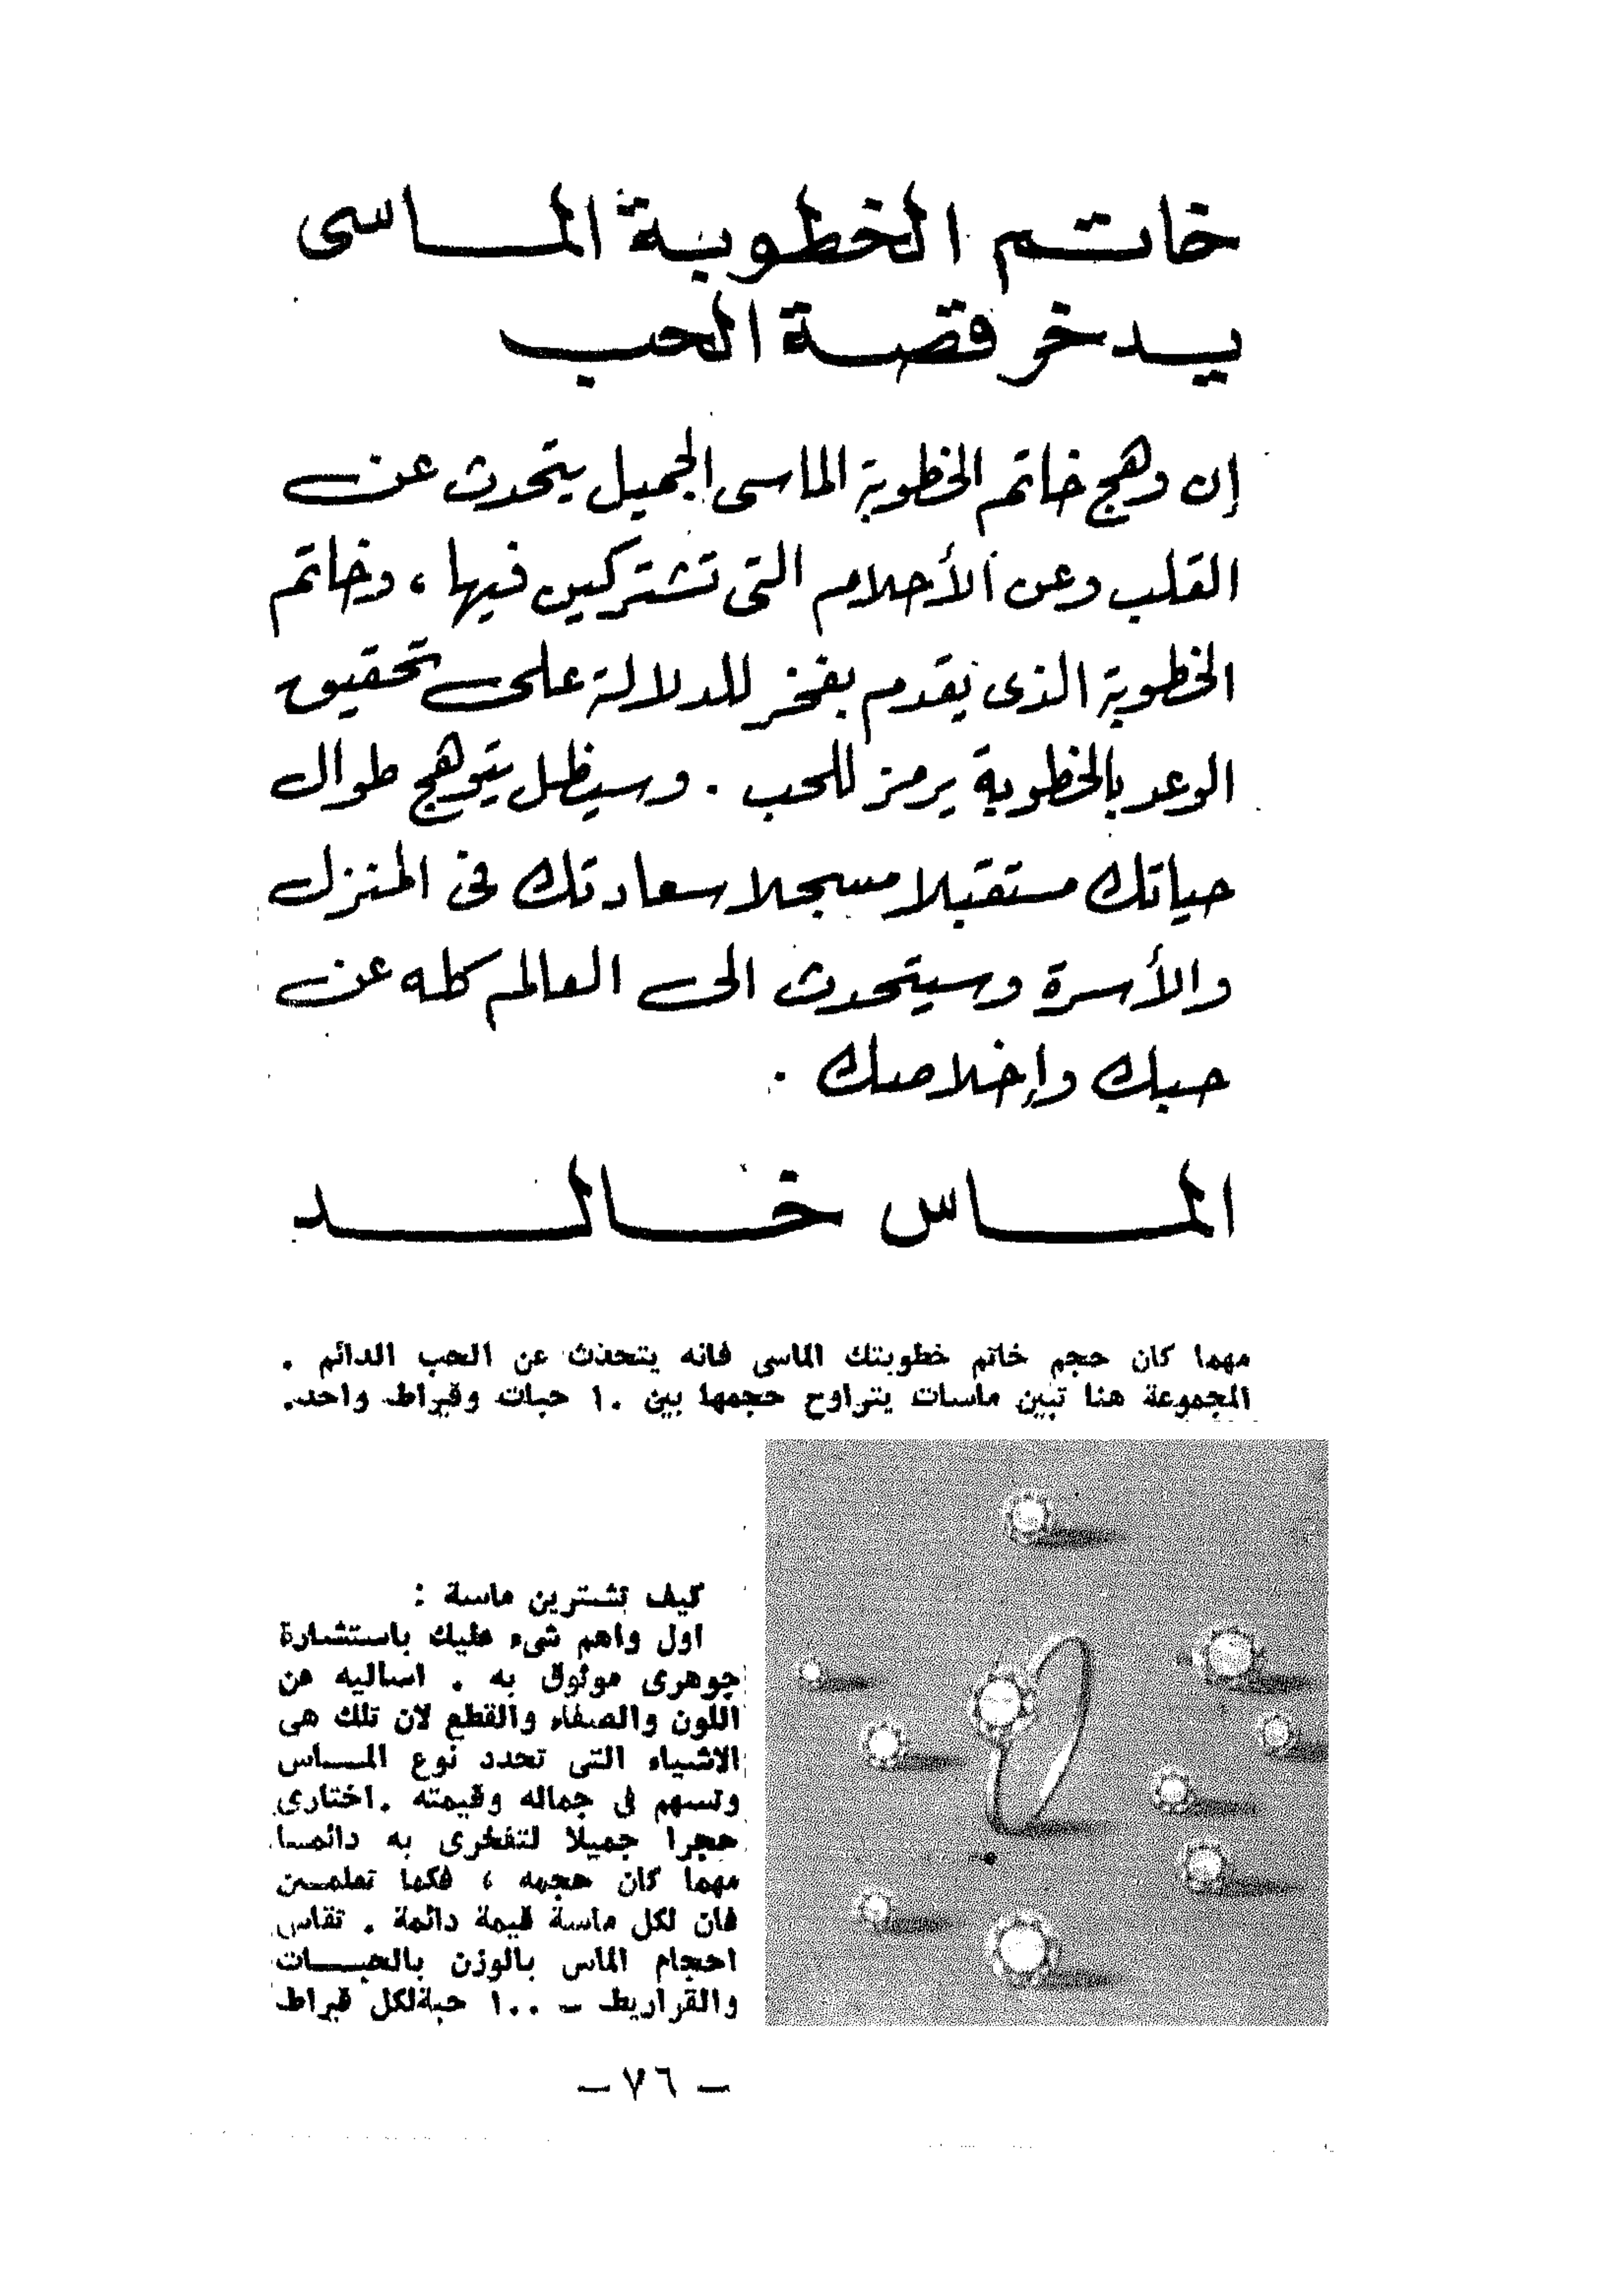 خاتم الخطوبة الماسى
يدخر قصة الحب
إن وهج خاتم الخطوبة الماسى الجميل يتحدث عن
القلب وعن الأحلام التى تشتركين فيها ، وخاتم
الخطوبة الذى يقدم بفخر للدلالة على تحقيق
الوعد بالخطوبة يرمز للحب . وسيظل يتوهج طوال
حياتك مستقبلا مسجلا سعادتك فى المنزل
والأسرة وسيتحدث الى العالم كله عن
حبك وإخلاصك .
الماس خالد
مهما كان حجم خاتم خطوبتك الماسى فانه يتحدث عن الحب الدائم .
المجموعة هنا تبين ماسات يتراوح حجمها بين ١٠ حبات وقيراط واحد.
كيف تشترين ماسة :
اول واهم شىء عليك باستشارة
جوهرى موثوق به . اساليه عن
اللون والصفاء والقطع لان تلك هى
الاشياء التى تحدد نوع المـــاس
وتسهم فى جماله وقيمته .اختارى
حجرا جميلا لتفخرى به دائمــا
مهما كان حجمه ، فكما تعلمــين
فان لكل ماسة قيمة دائمة . تقاس
احجام الماس بالوزن بالحبـــات
والقراريط – ١٠٠ حبةلكل قيراط
– ٧٦ –